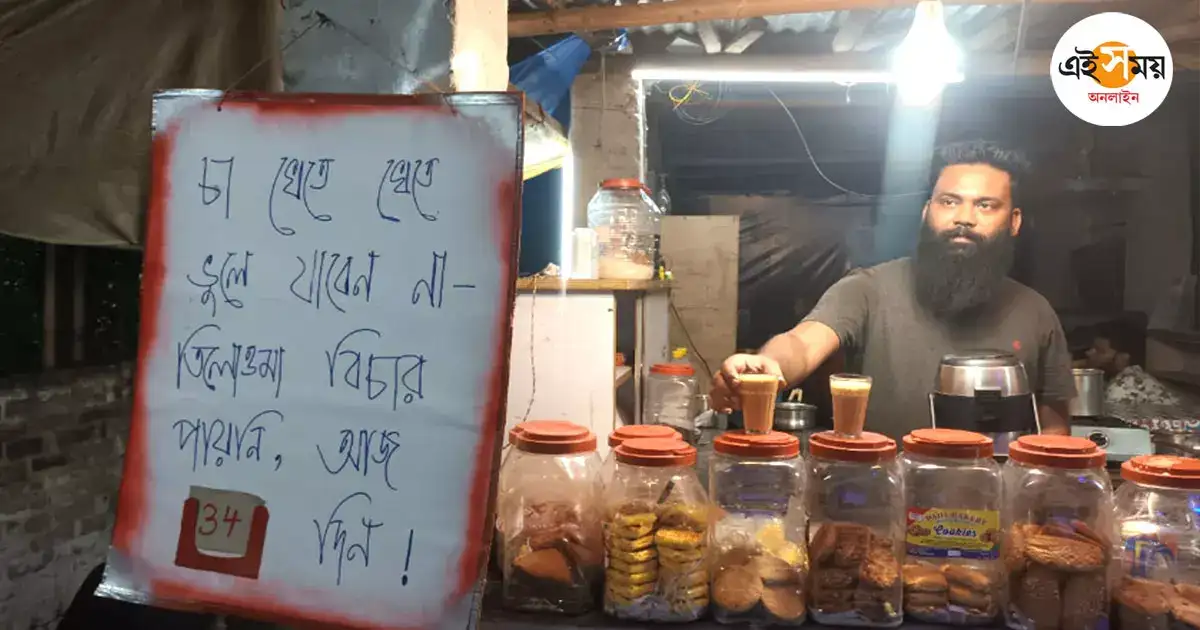 চা খেতে খেতে
ভুলে যাবেন না-
তিলোত্তমা বিচার
পায়নি, আজ
34 দিন !
এই সময়
অনলাইন
Cookies